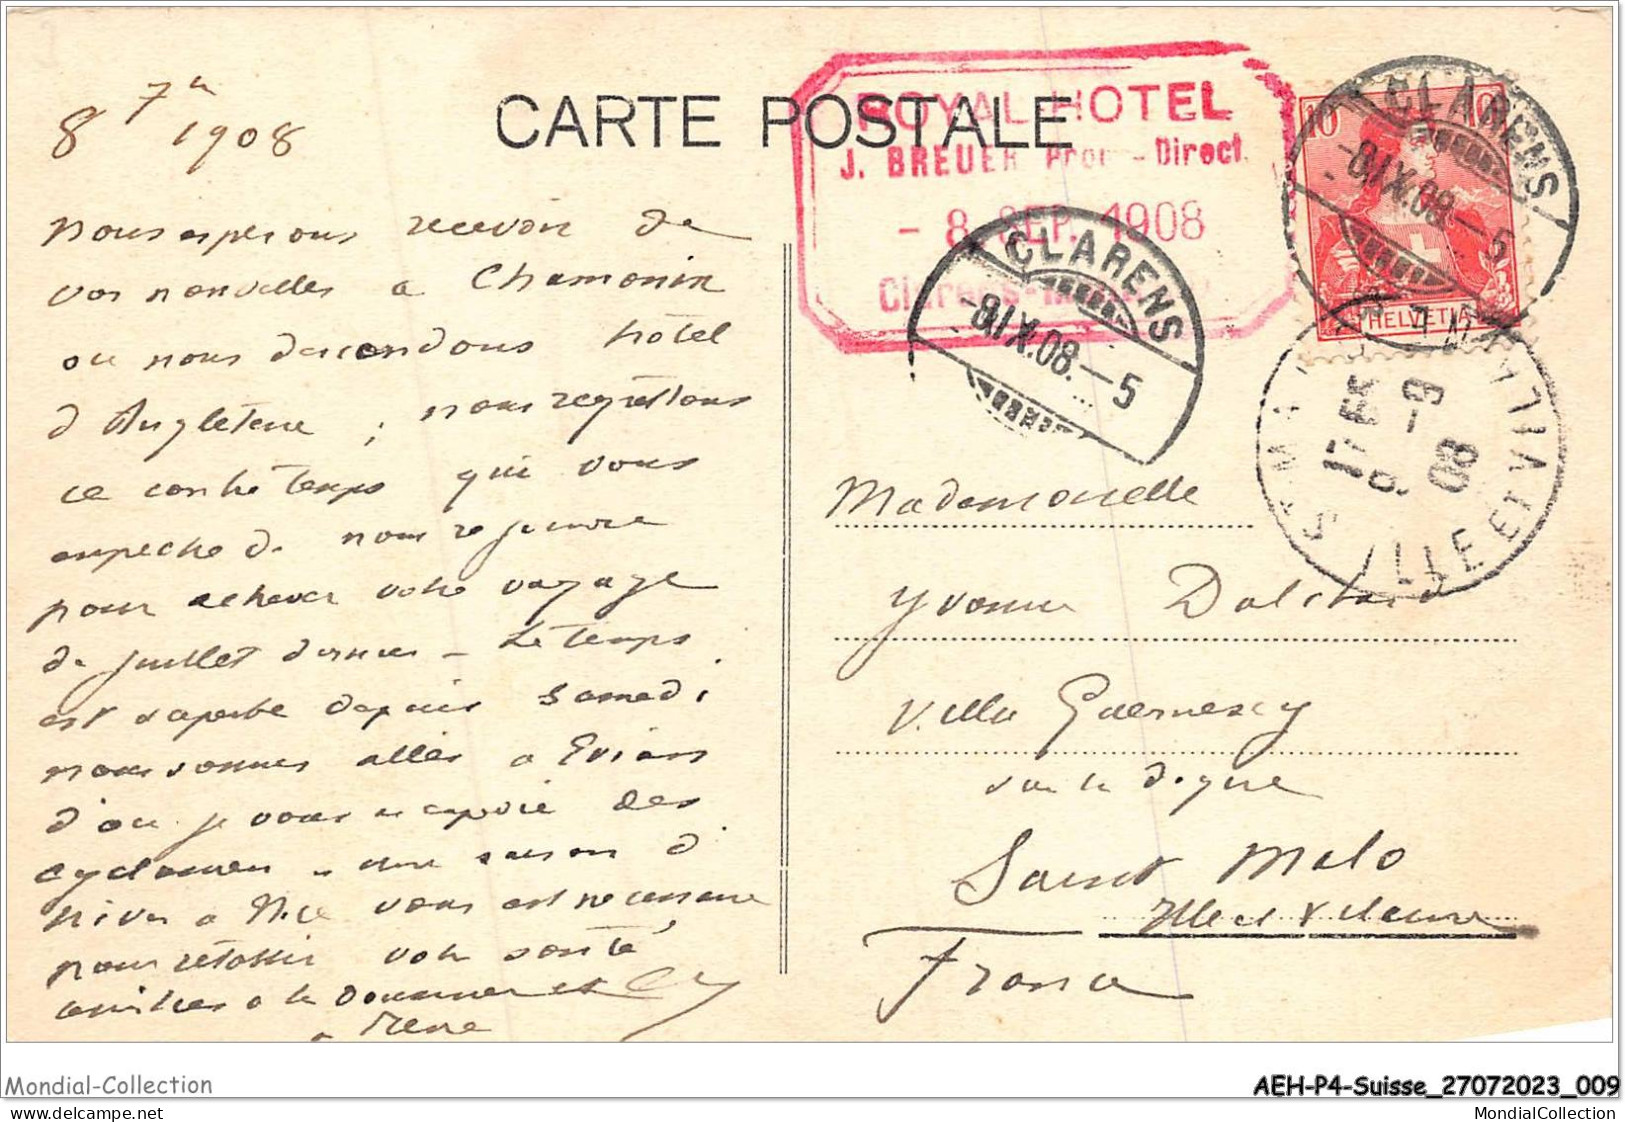 8 7bre 1908
CARTE POSTALE
ROYAL HOTEL
J. BREUER Propr - Direct.
- 8 SEP. 1908
Clarens-
CLARENS
-8.IX.08.-5
CLARENS
-8.IX.08.-5
10 10
HELVETIA
ST MALO
ILLE ET VILAINE
9 -9
08
nous esperons recevoir de
vos nouvelles a Chamonix
ou nous descendons hôtel
d'Angleterre ; nous regrettons
ce contretemps qui vous
empeche de nous rejoindre
pour achever votre voyage
de juillet dernier - Le temps
est superbe depuis samedi ;
nous sommes allés a Evian
d'ou je vous ai envoié des
cyclamen - une saison d'
hiver a Nice vous est necessaire
pour retablir votre santé
amitiés a la
a René
Mademoiselle
Yvonne
Villa Guernesey
sur la digue
Saint Malo
Ille et Vilaine
France
Mondial-Collection
delcampe.net
AEH-P4-Suisse_27072023_009
MondialCollection